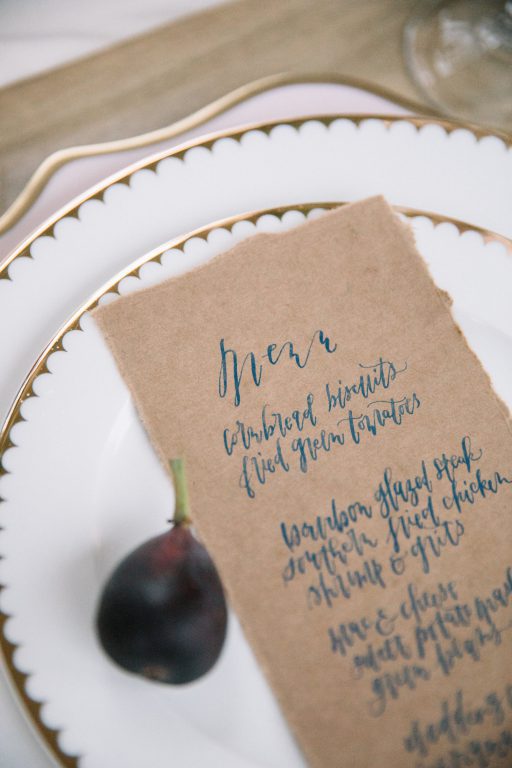 menu
cornbread biscuits
fried green tomatoes
bourbon glazed steak
southern fried chicken
shrimp & grits
mac & cheese
sweet potato mash
green beans